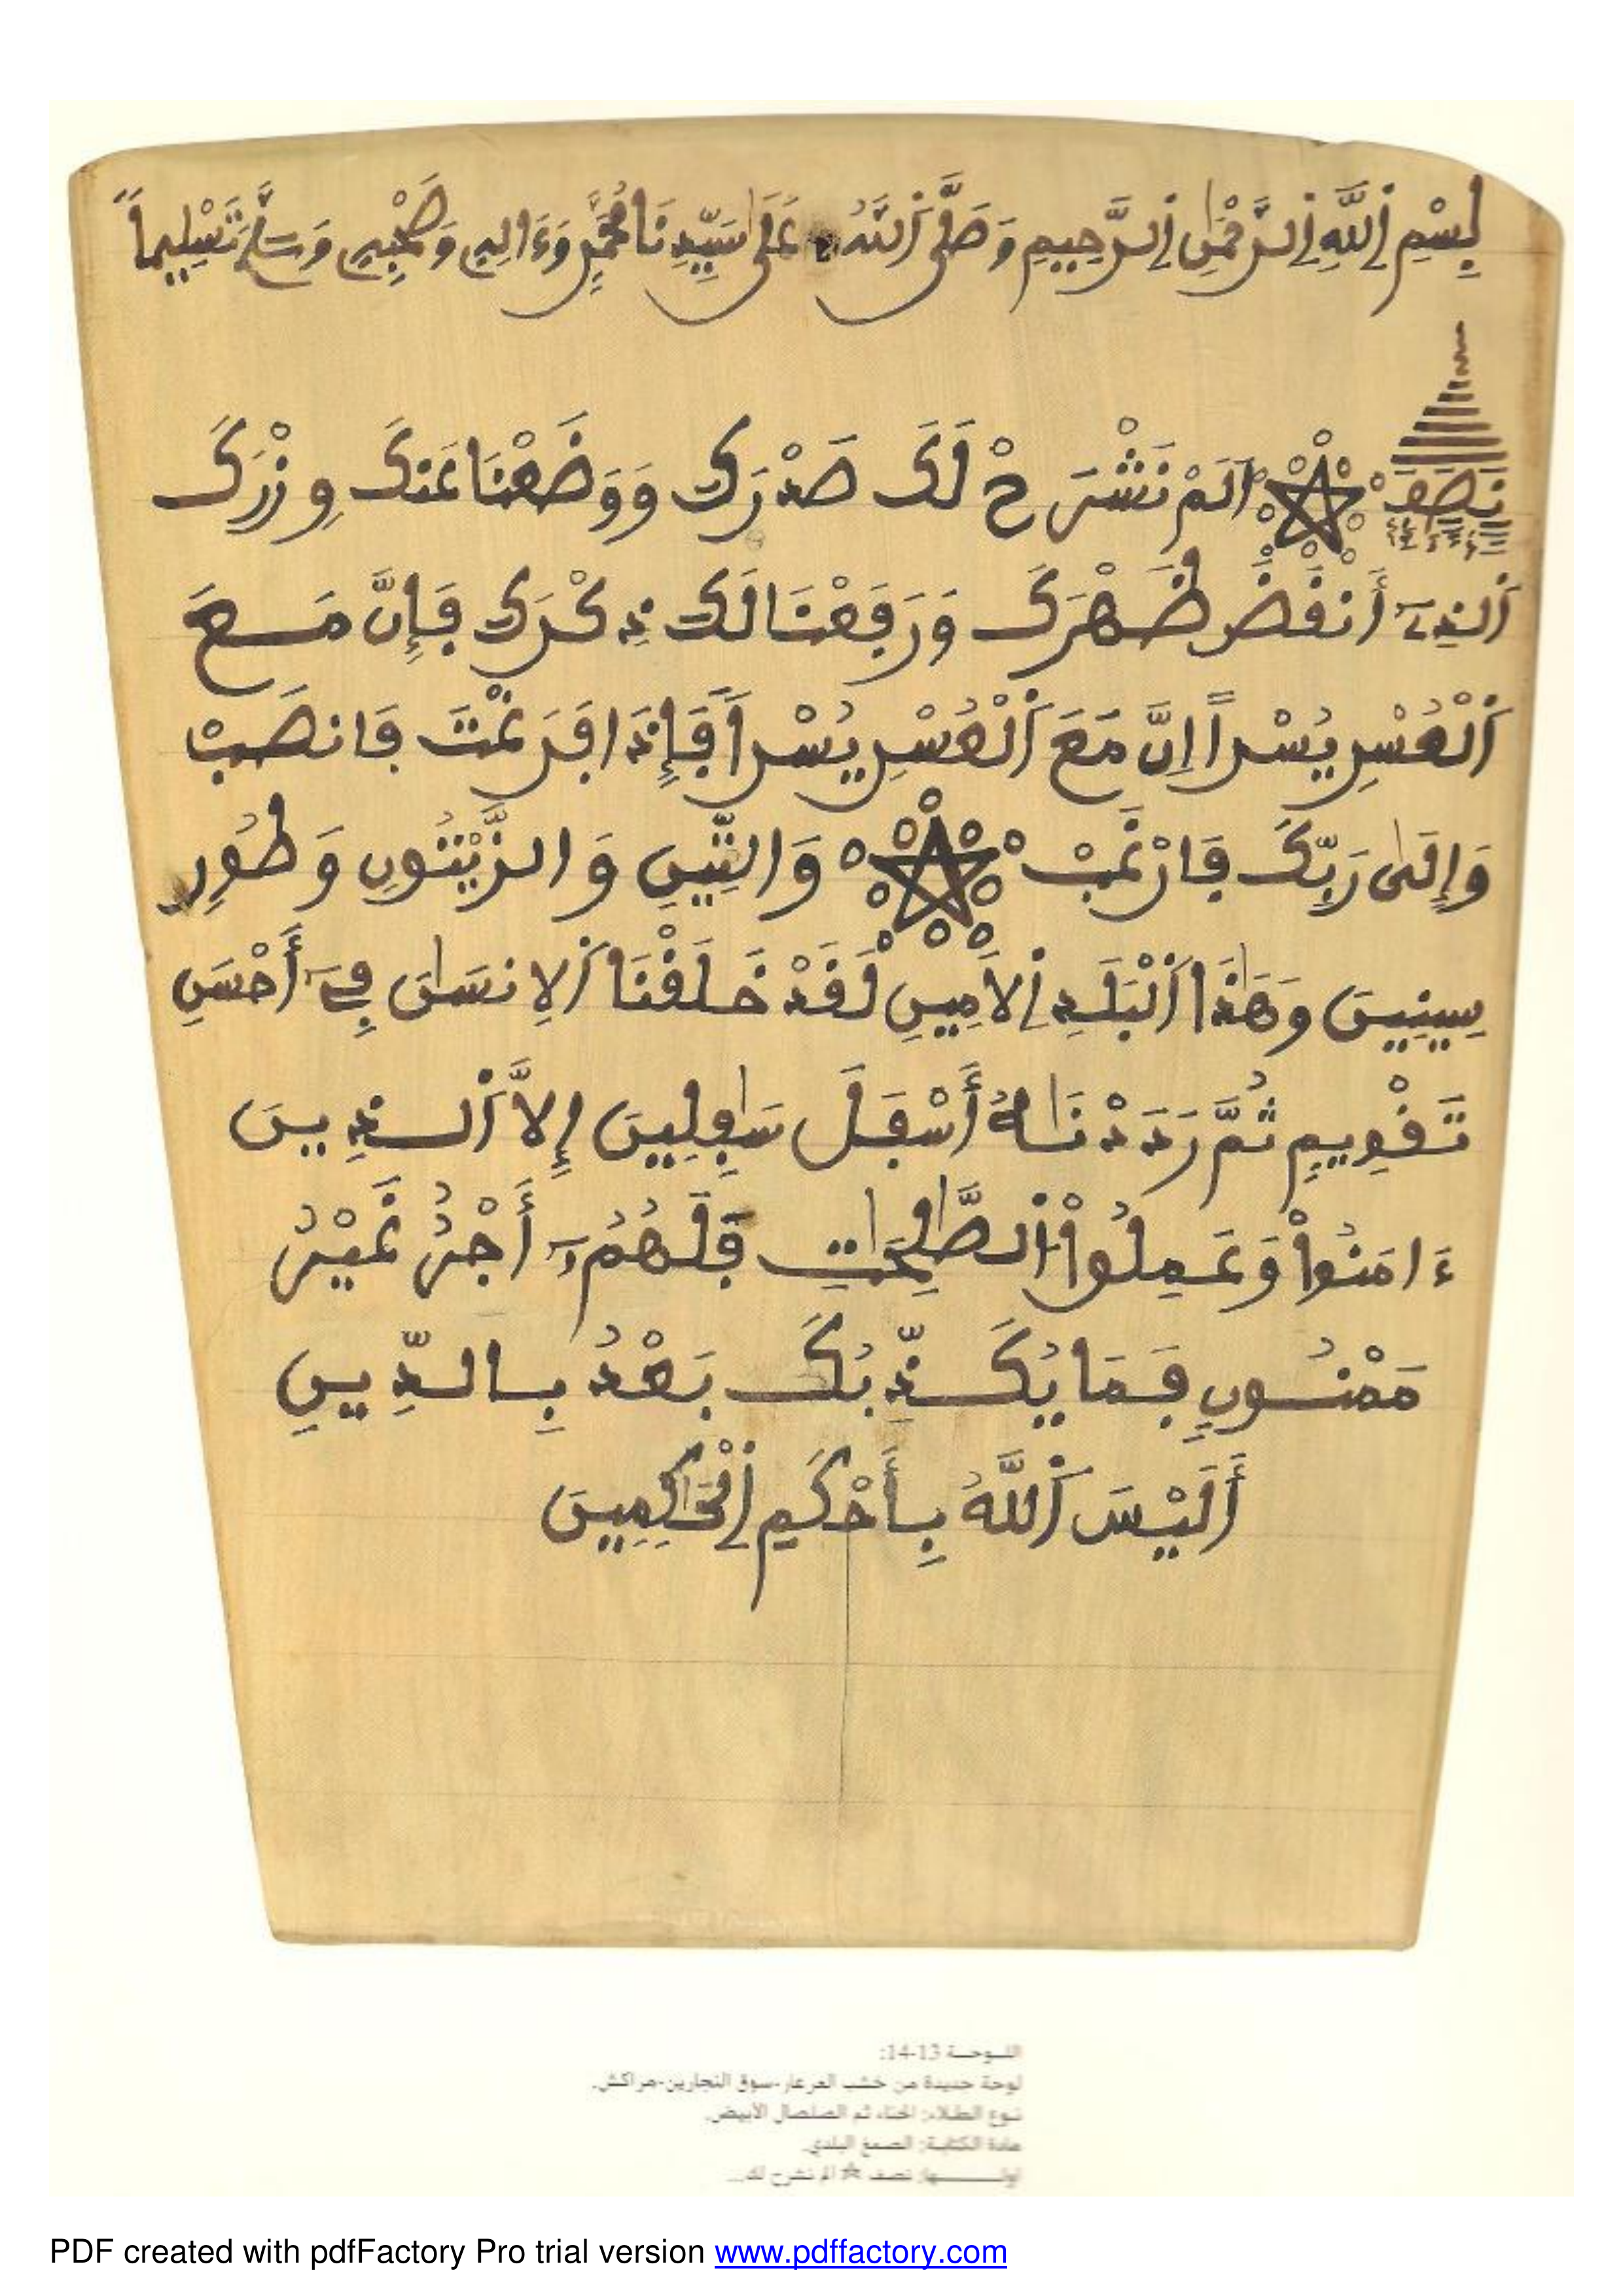 بِسْمِ اِللَّهِ اِلرَّحْمَٰنِ اِلرَّحِيمِ وَصَلَّى اَللَّهُ عَلَىٰ سَيِّدِنَا مُحَمَّدٍ وَءَالِهِ وَصَحْبِهِ وَسَلَّمَ تَسْلِيماً
نصف
أَلَمْ نَشْرَحْ لَكَ صَدْرَكَ وَوَضَعْنَا عَنكَ وِزْرَكَ
اَلذِےٓ أَنقَضَ ظَهْرَكَ وَرَفَعْنَا لَكَ ذِكْرَكَ فَإِنَّ مَعَ
اَلْعُسْرِ يُسْراً اِنَّ مَعَ اَلْعُسْرِ يُسْراً فَإِذَا فَرَغْتَ فَانصَبْ
وَإِلَىٰ رَبِّكَ فَارْغَب وَالتِّينِ وَالزَّيْتُونِ وَطُورِ
سِينِينَ وَهَٰذَا اَلْبَلَدِ اِلاَمِينِ لَقَدْ خَلَقْنَا اَلِانسَٰنَ فِےٓ أَحْسَنِ
تَقْوِيمٍ ثُمَّ رَدَدْنَٰهُ أَسْفَلَ سَٰفِلِينَ إِلاَّ اَلذِينَ
ءَامَنُواْ وَعَمِلُواْ اُلصَّٰلِحَٰتِ فَلَهُمُۥٓ أَجْرٌ غَيْرُ
مَمْنُونٍ فَمَا يُكَذِّبُكَ بَعْدُ بِالدِّينِ
أَلَيْسَ اَللَّهُ بِأَحْكَمِ اِلْحَٰكِمِينَ
اللـوحـة 13-14:
لوحة جديدة من خشب العرعار-سوق النجارين-مراكش.
نـوع الطـلاء: الحناء ثم الصلصال الأبيض.
مادة الكتابـة: الصمغ البلدي.
أولـــــــها: نصف ☆ الم نشرح لك...
PDF created with pdfFactory Pro trial version www.pdffactory.com